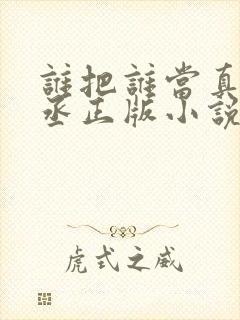 誰把誰當真
丞正版小說
虎式之威